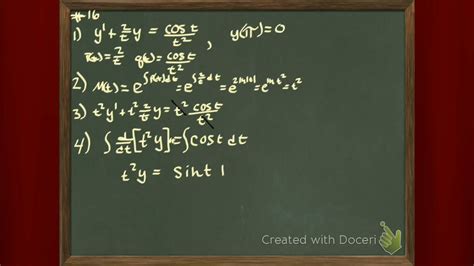 #16
1) y' + 2/t y = cos t / t², y(π) = 0
P(t) = 2/t q(t) = cos t / t²
2) μ(t) = e^∫P(t)dt = e^∫2/t dt = e^2ln|t| = e^ln t² = t²
3) t²y' + t² 2/t y = t² cos t / t²
4) ∫ d/dt [t²y] = ∫cos t dt
t²y = sin t |
Created with Doceri